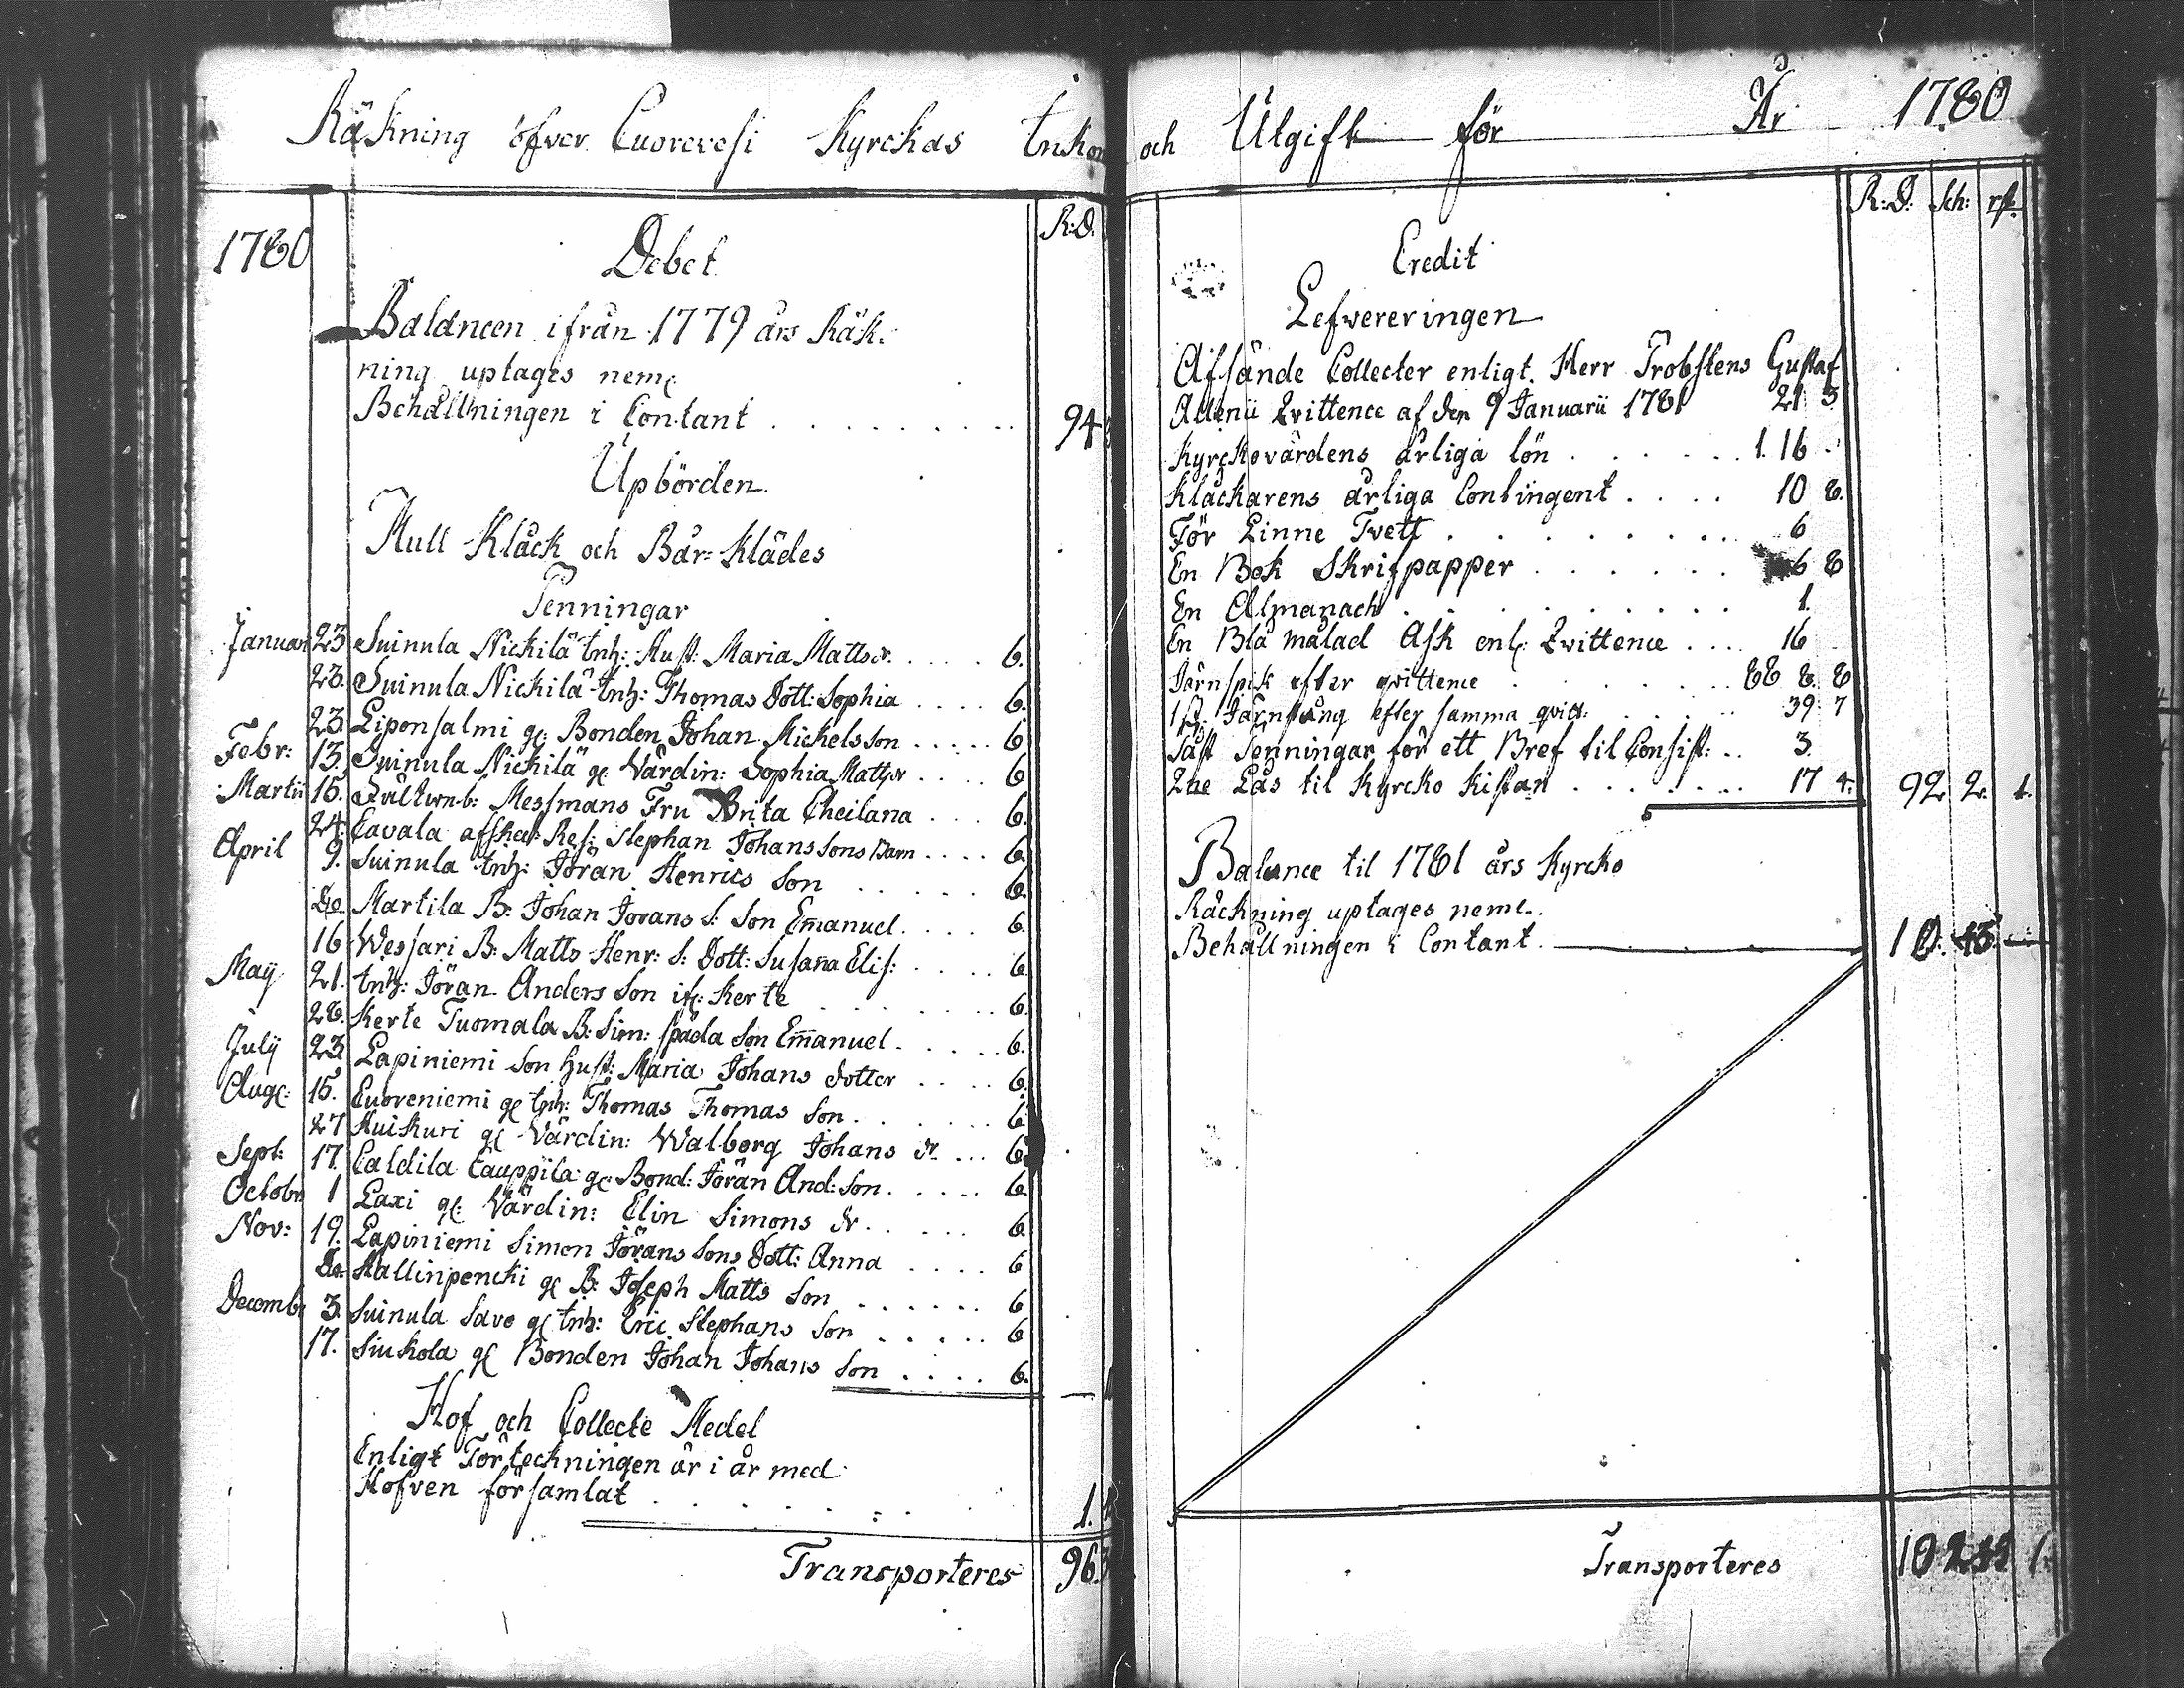 Räkning öfver Cuorevesi Kyrckas Inkom
1780
R:D.
Debet
Balancen ifrån 1779 års Räk-
ning uptages neml:
Behållningen i Contant . . . . . . . . 94
Upbörden
Mull Klåck och Bår-Klädes
Penningar
Januari 23 Suinula Nickilä Inh: Hust: Maria Mattsdr. . . . . 6.
23. Suinula Nickilä Inh: Thomas Dott: Sophia . . . . 6.
23. Liponsalmi gl: Bonden Johan Mickels son . . . . . 6
Febr: 13. Suinula Nickilä gl: Värdin: Sophia Mattsdr . . . . 6
Martii 15. Messmans Fru Brita Cheilana . . . 6.
24. Cavala Stephan Johans sons Barn . . . . 6.
April 9. Suinula Inh: Jöran Henrics son . . . . . 6.
Do. Martila B: Johan Jorans S: Son Emanuel . . . . 6.
16 Wessari B: Matts Henr: S: Dott: Susana Elis: . . . . . 6.
Maij 21. Inh: Jöran Anders Son if: Kerte . . . . . . 6.
28. Kerte Tuomala B: Sim: späda Son Emanuel . . . . . 6.
Julij 23. Lapiniemi Son Hust: Maria Johans dotter . . . . 6.
Aug: 15. Cuoreniemi gl Inh: Thomas Thomas Son . . . . . . 6.
27 Huikuri gl Värdin: Walborg Johans dr . . . 6
Sept: 17. Caldila Cauppila gl: Bond: Jöran And: Son . . . . . 6.
Octobr 1 Laxi gl: Värdin: Elin Simons dr . . . . . 6.
Nov: 19. Lapiniemi Simon Jörans Sons Dott: Anna . . . . 6
Do. Hallinpencki gl B: Joseph Matts Son . . . . . . 6
Decembr 3. Suinula Savo gl Inh: Eric Stephans Son . . . . . 6
17. Siukola gl Bonden Johan Johans Son . . . . 6.
Hof och Collecte Medel
Enligt Förteckningen är i år med
Hofven församlat . . . . . . 1.
Transporteres 96.
och Utgift för År 1780
R:D: Sch: rst.
Credit
Lefvereringen
Afsände Collecter enligt Herr Probstens Gustaf
Allenii Qvittence af den 9 Januarii 1781 21 3
Kyrckovärdens årliga lön . . . . . . 1. 16 .
Klåckarens årliga Contingent . . . . 10 8.
För Linne Tvett . . . . . . . . . 6
En Bok Skrifpapper . . . . . . 6 8
En Almanach . . . . . . . . . 1.
En Blå målad Ask enl: Qvittence . . . . 16
Järnspik efter qvittence . . . . . . 88 8. 8
1 st: Järnstång efter samma qvitt: . . . . . 39 7
Påst Penningar för ett Bref til Consist: . . 3.
2ne Lås til Kyrcko Kistan . . . . . . . 17 4. 92 2. 1.
Balance til 1781 års Kyrcko
Räckning uptages neml.
Behållningen i Contant. 10. 43.
Transporteres